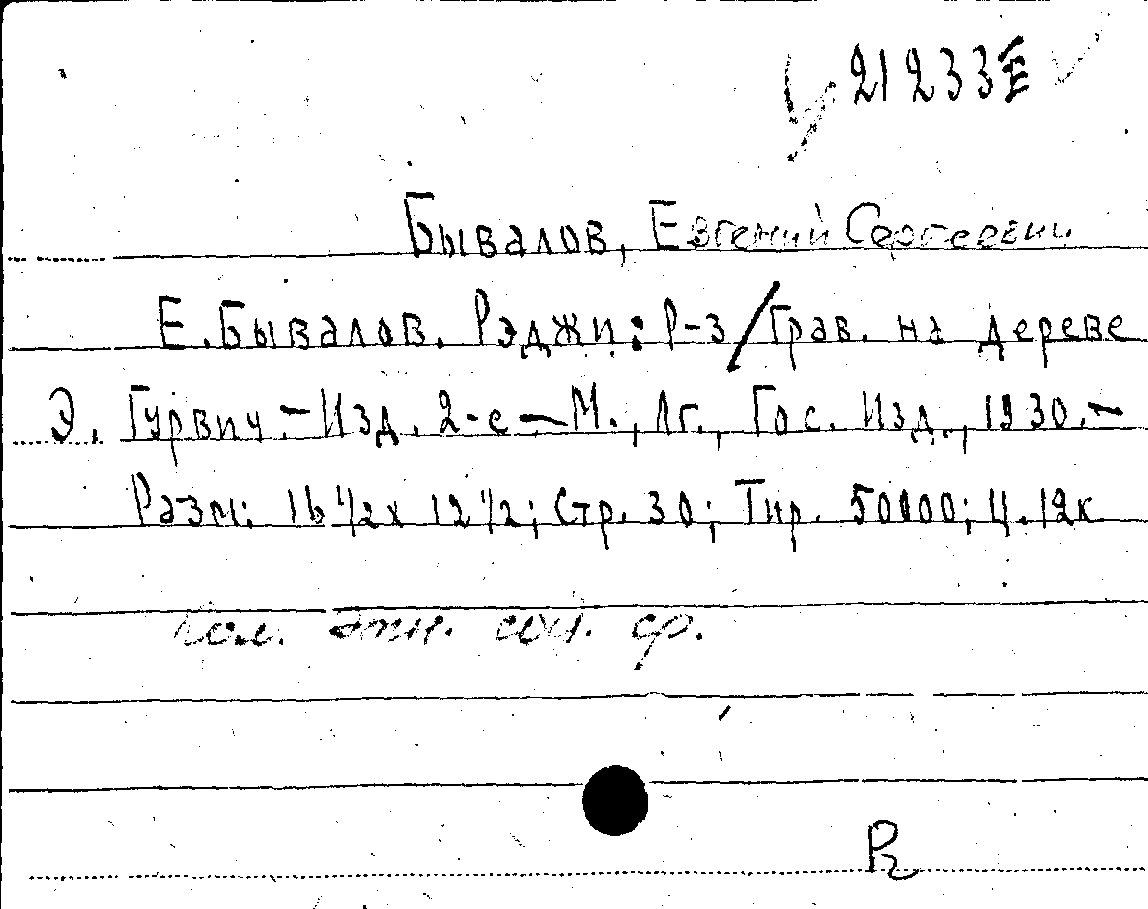 21233Е
Бывалов, Евгений Сергеевич
Е. Бывалов. Рэджи: Р-з/Грав. на дереве
Э. Гурвич – Изд. 2-е – М., Лг., Гос. Изд., 1930. –
Разм: 16 1/2 х 12 1/2; Стр. 30; Тир. 50000; Ц. 12к
этн. ср.